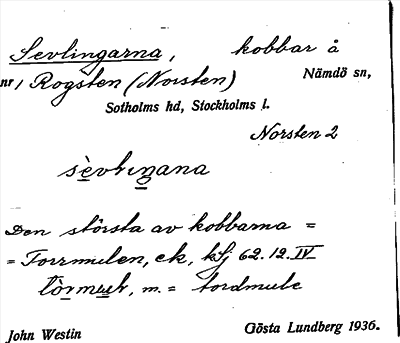 Sevlingarna, kobbar å
nr 1 Rogsten (Norsten) Nämdö sn,
Sotholms hd, Stockholms l.
Norsten 2
sèvlinana
Den största av kobbarna =
= Torrmulen, ek, kfj 62.12.IV
tòrmuler, m. = tordmule
John Westin Gösta Lundberg 1936.